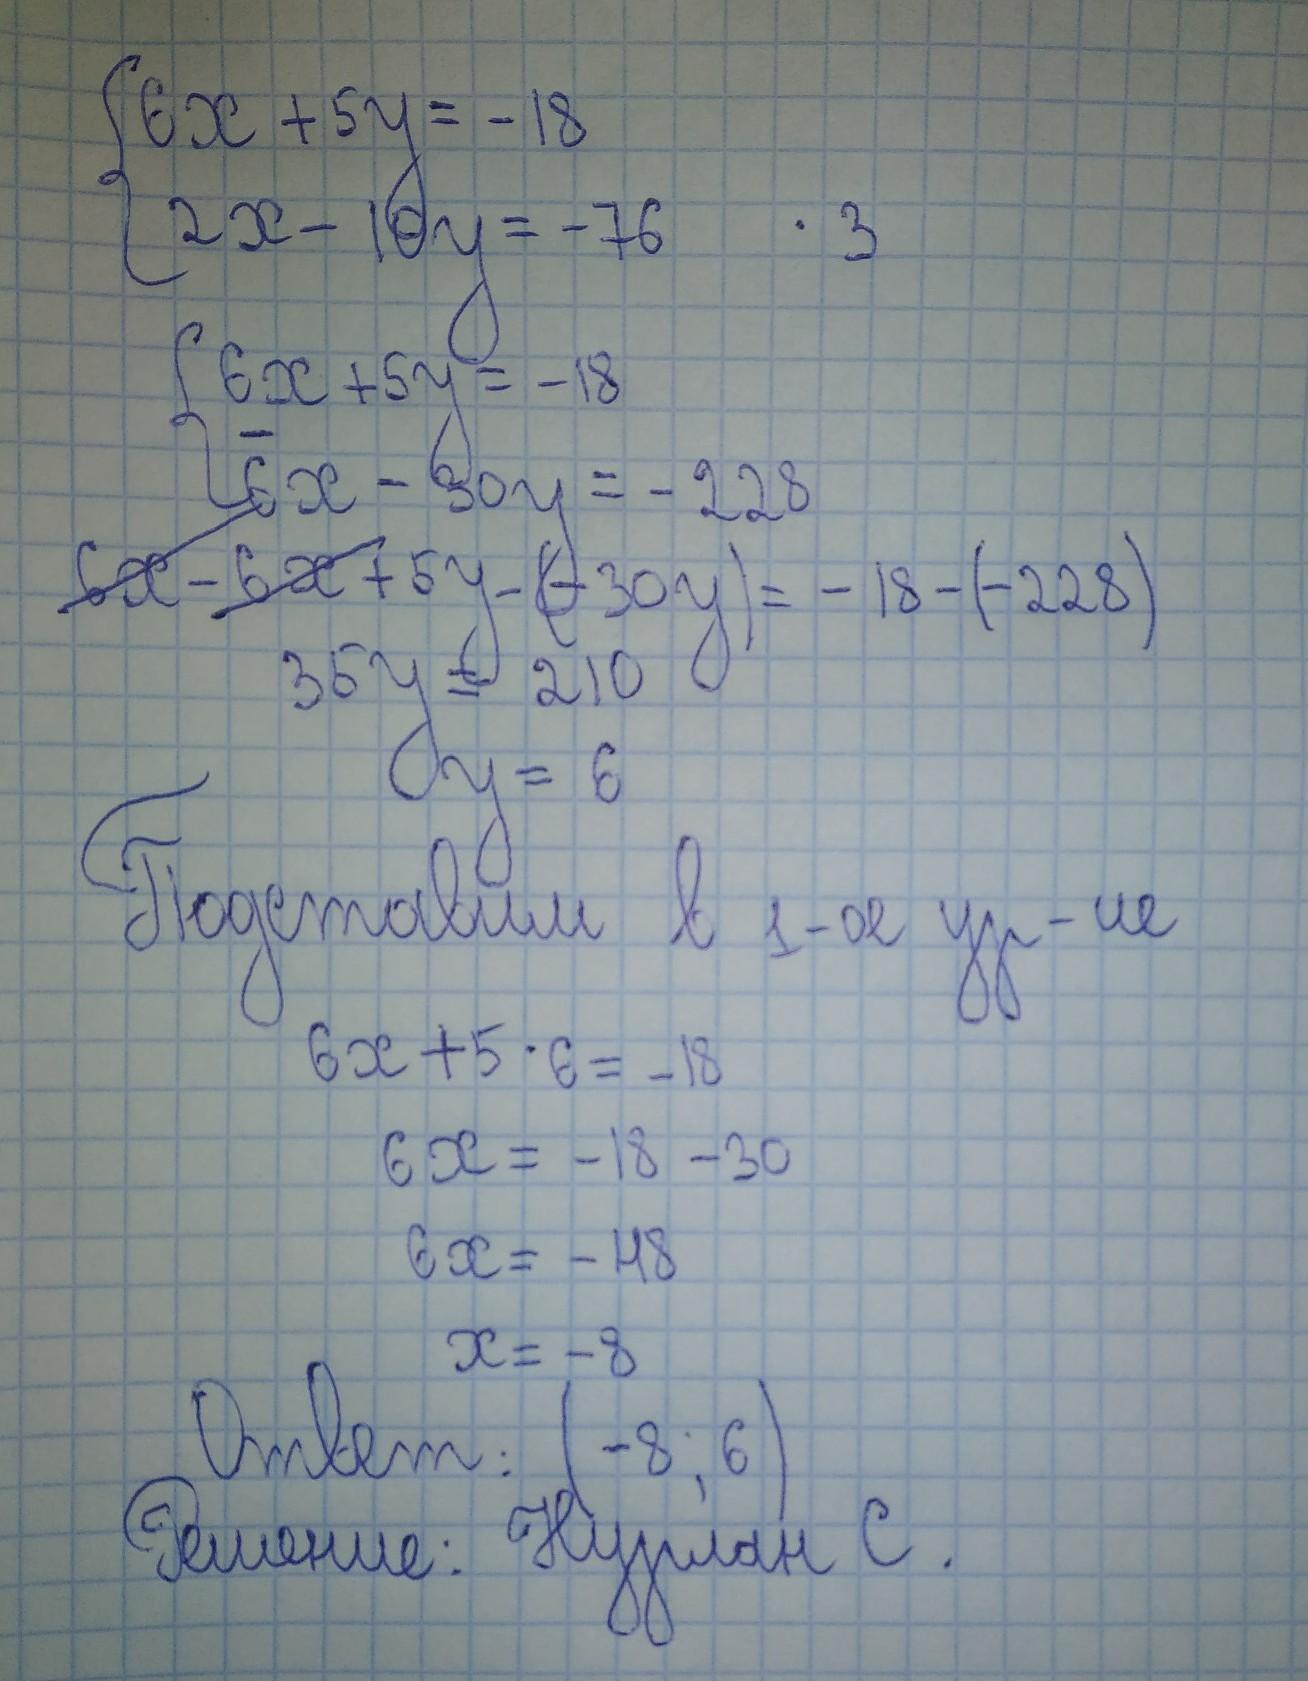 {6x + 5y = -18
2x - 10y = -76 · 3
{6x + 5y = -18
-
6x - 30y = -228
6x - 6x + 5y - (-30y) = -18 - (-228)
35y = 210
y = 6
Подставим в 1-ое ур-ие
6x + 5 · 6 = -18
6x = -18 - 30
6x = -48
x = -8
Ответ: (-8; 6)
Решение: Нурлан С.